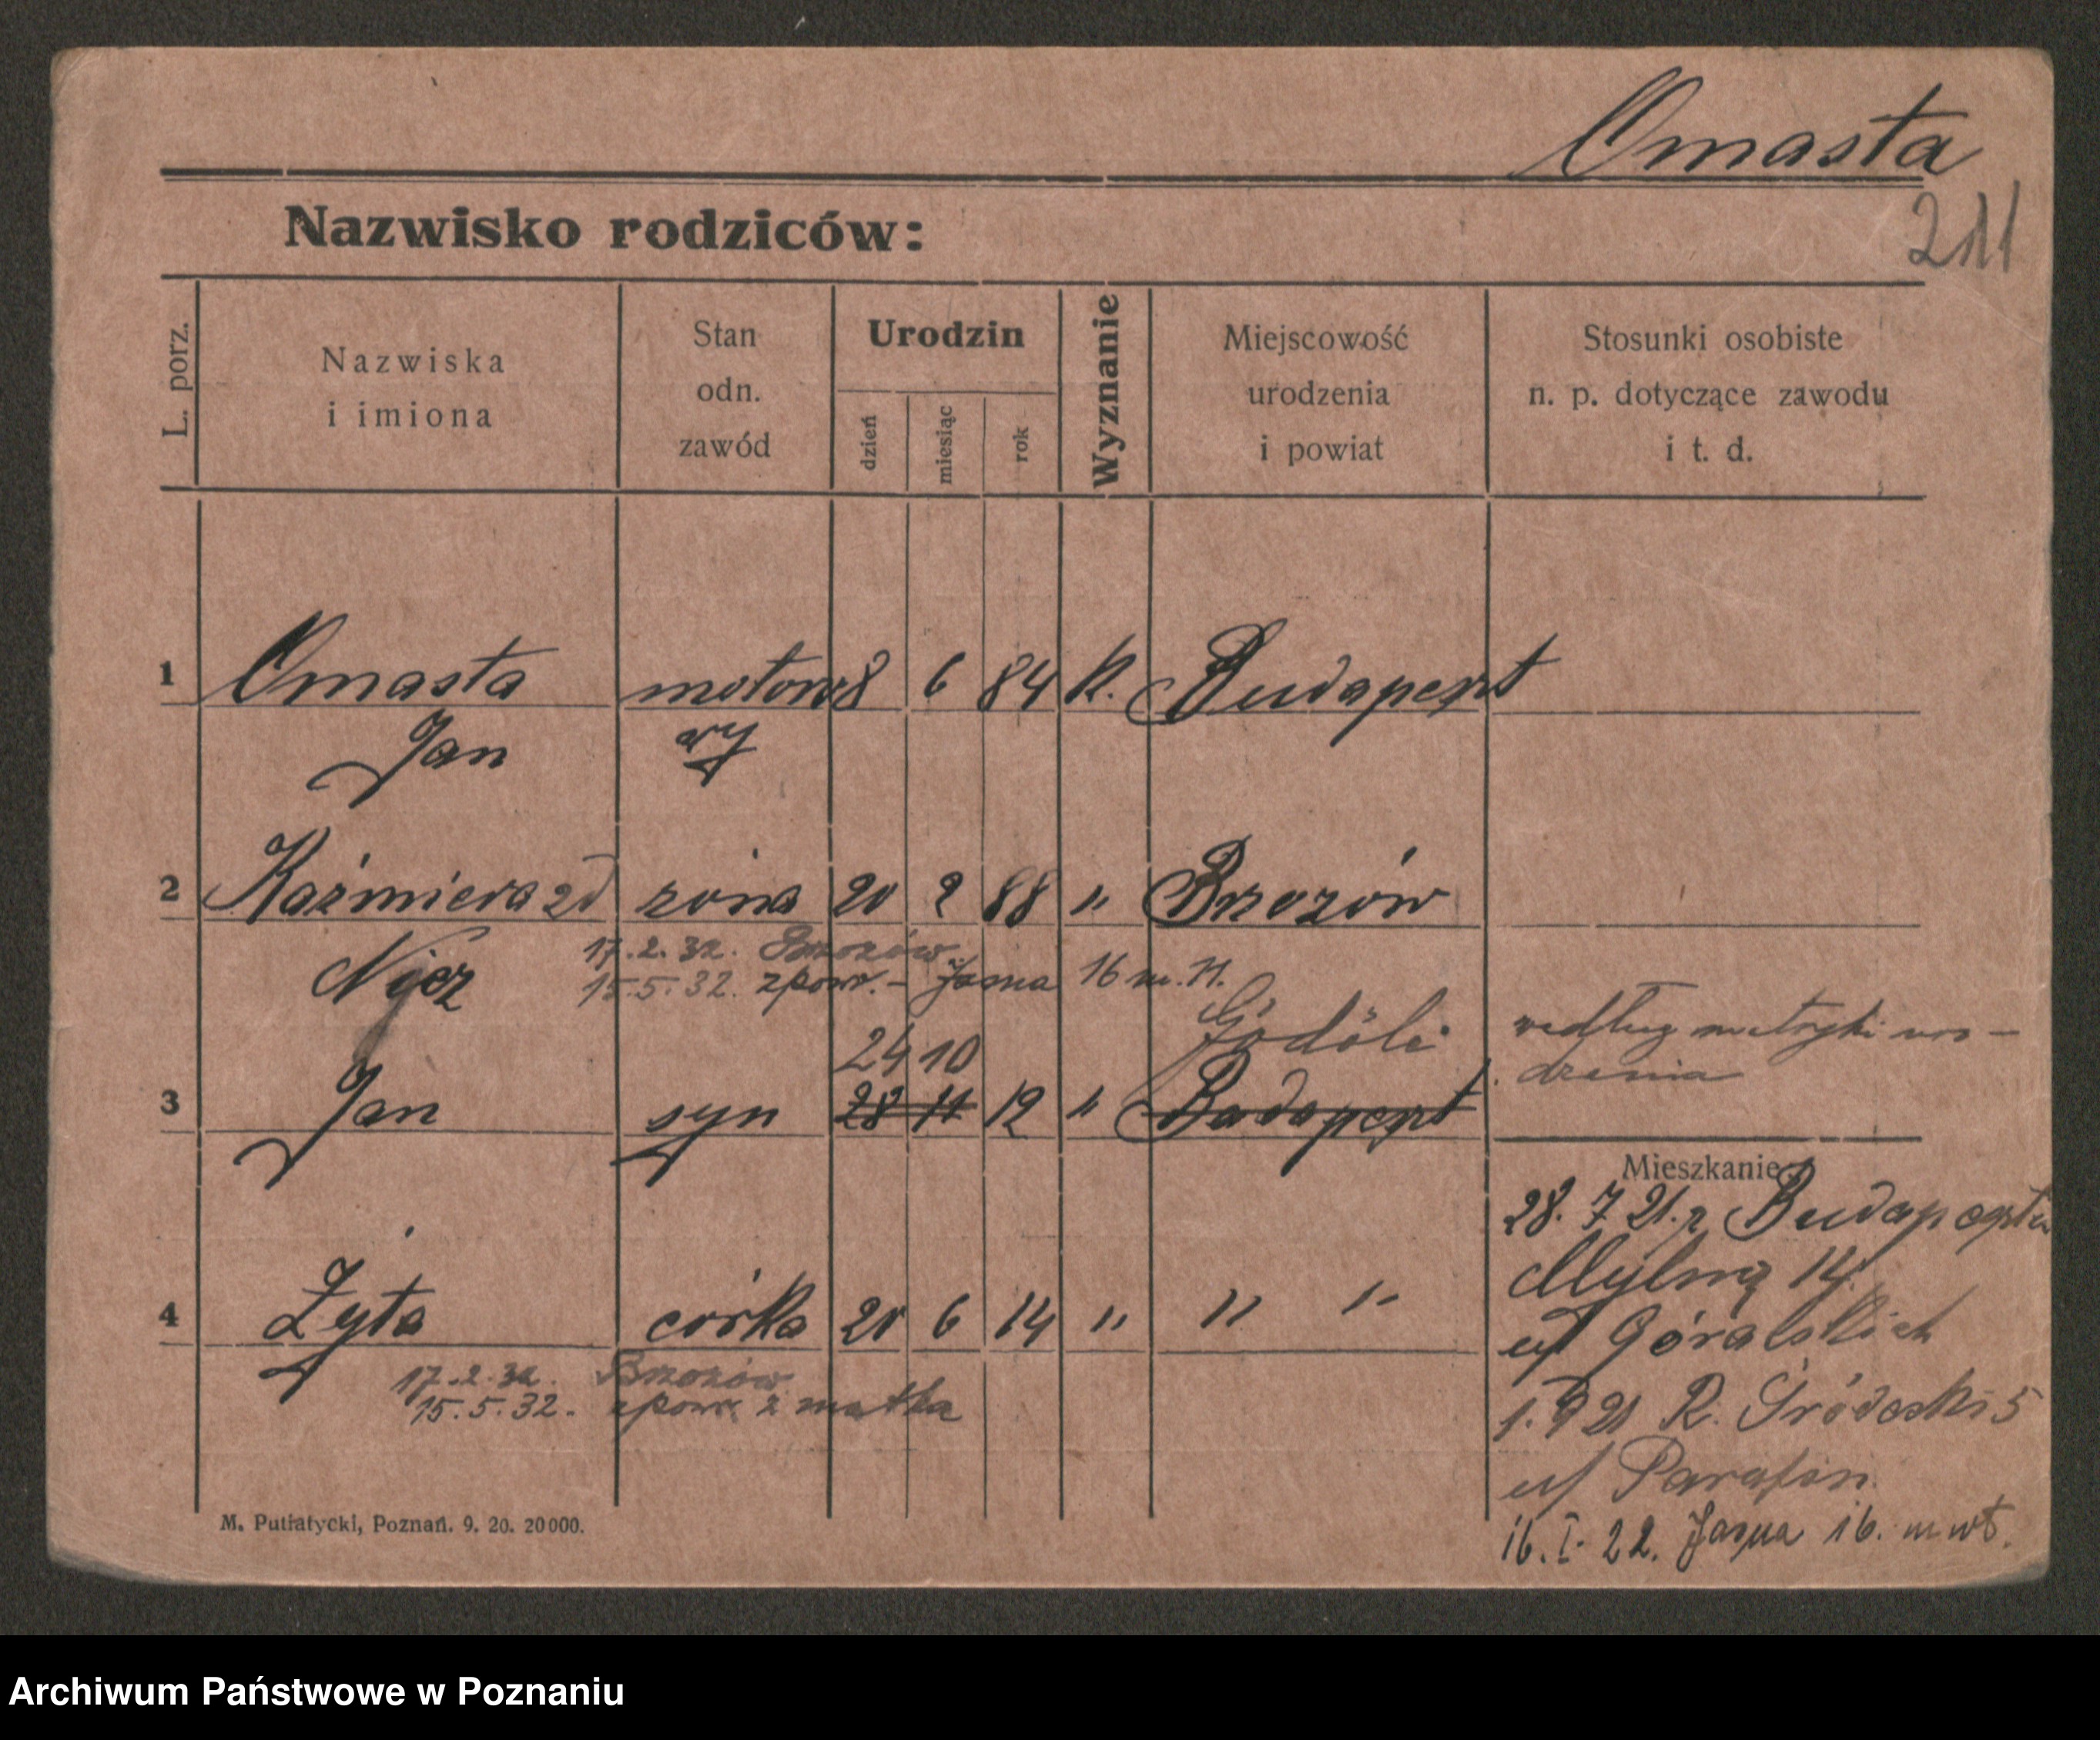 Omasta
211
Nazwisko rodziców:
L. porz.
Nazwiska
i imiona
Stan
odn.
zawód
Urodzin
dzień
miesiąc
rok
Wyznanie
Miejscowość
urodzenia
i powiat
Stosunki osobiste
n. p. dotyczące zawodu
i t. d.
1 Omasta motoro 8 6 84 k. Budapeszt
Jan wy
2 Kaźmiera zd żona 20 2 88 " Brzozów
Nycz
17.2.32. Brzozów
15.5.32. zpowr. - Jasna 16 m. 11.
24 10 Gödöle według metryki uro-
dzenia
3 Jan syn 28 11 12 " Budapeszt
Mieszkanie:
28. 7 21. z Budapesztu
Mylną 14
u/ Góralskich
4 Zyta córka 20 6 14 " " "
17.2.32. Brzozów
15.5.32. zpowr. z matką
1. 9 21 R. Śródecki 5
u/ Parafin.
16. I. 22. Jasna 16. m. wł.
M. Putiatycki, Poznań. 9. 20. 20000.
Archiwum Państwowe w Poznaniu